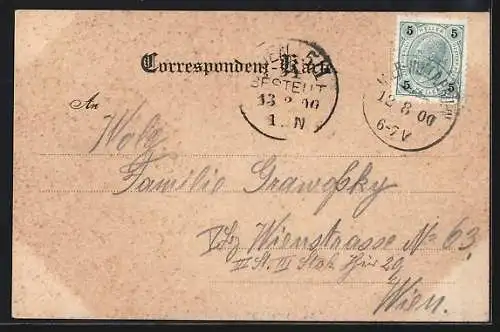 5 5
HELLER
5 5
Correspondenz-Karte
WIEN
BESTELLT
13 8 00
1 N
12 8 00
6-7 V
An
Wolg
Familie Grawofsky
Wienstrasse No 63.
II St. III Stok Thür 29
Wien.